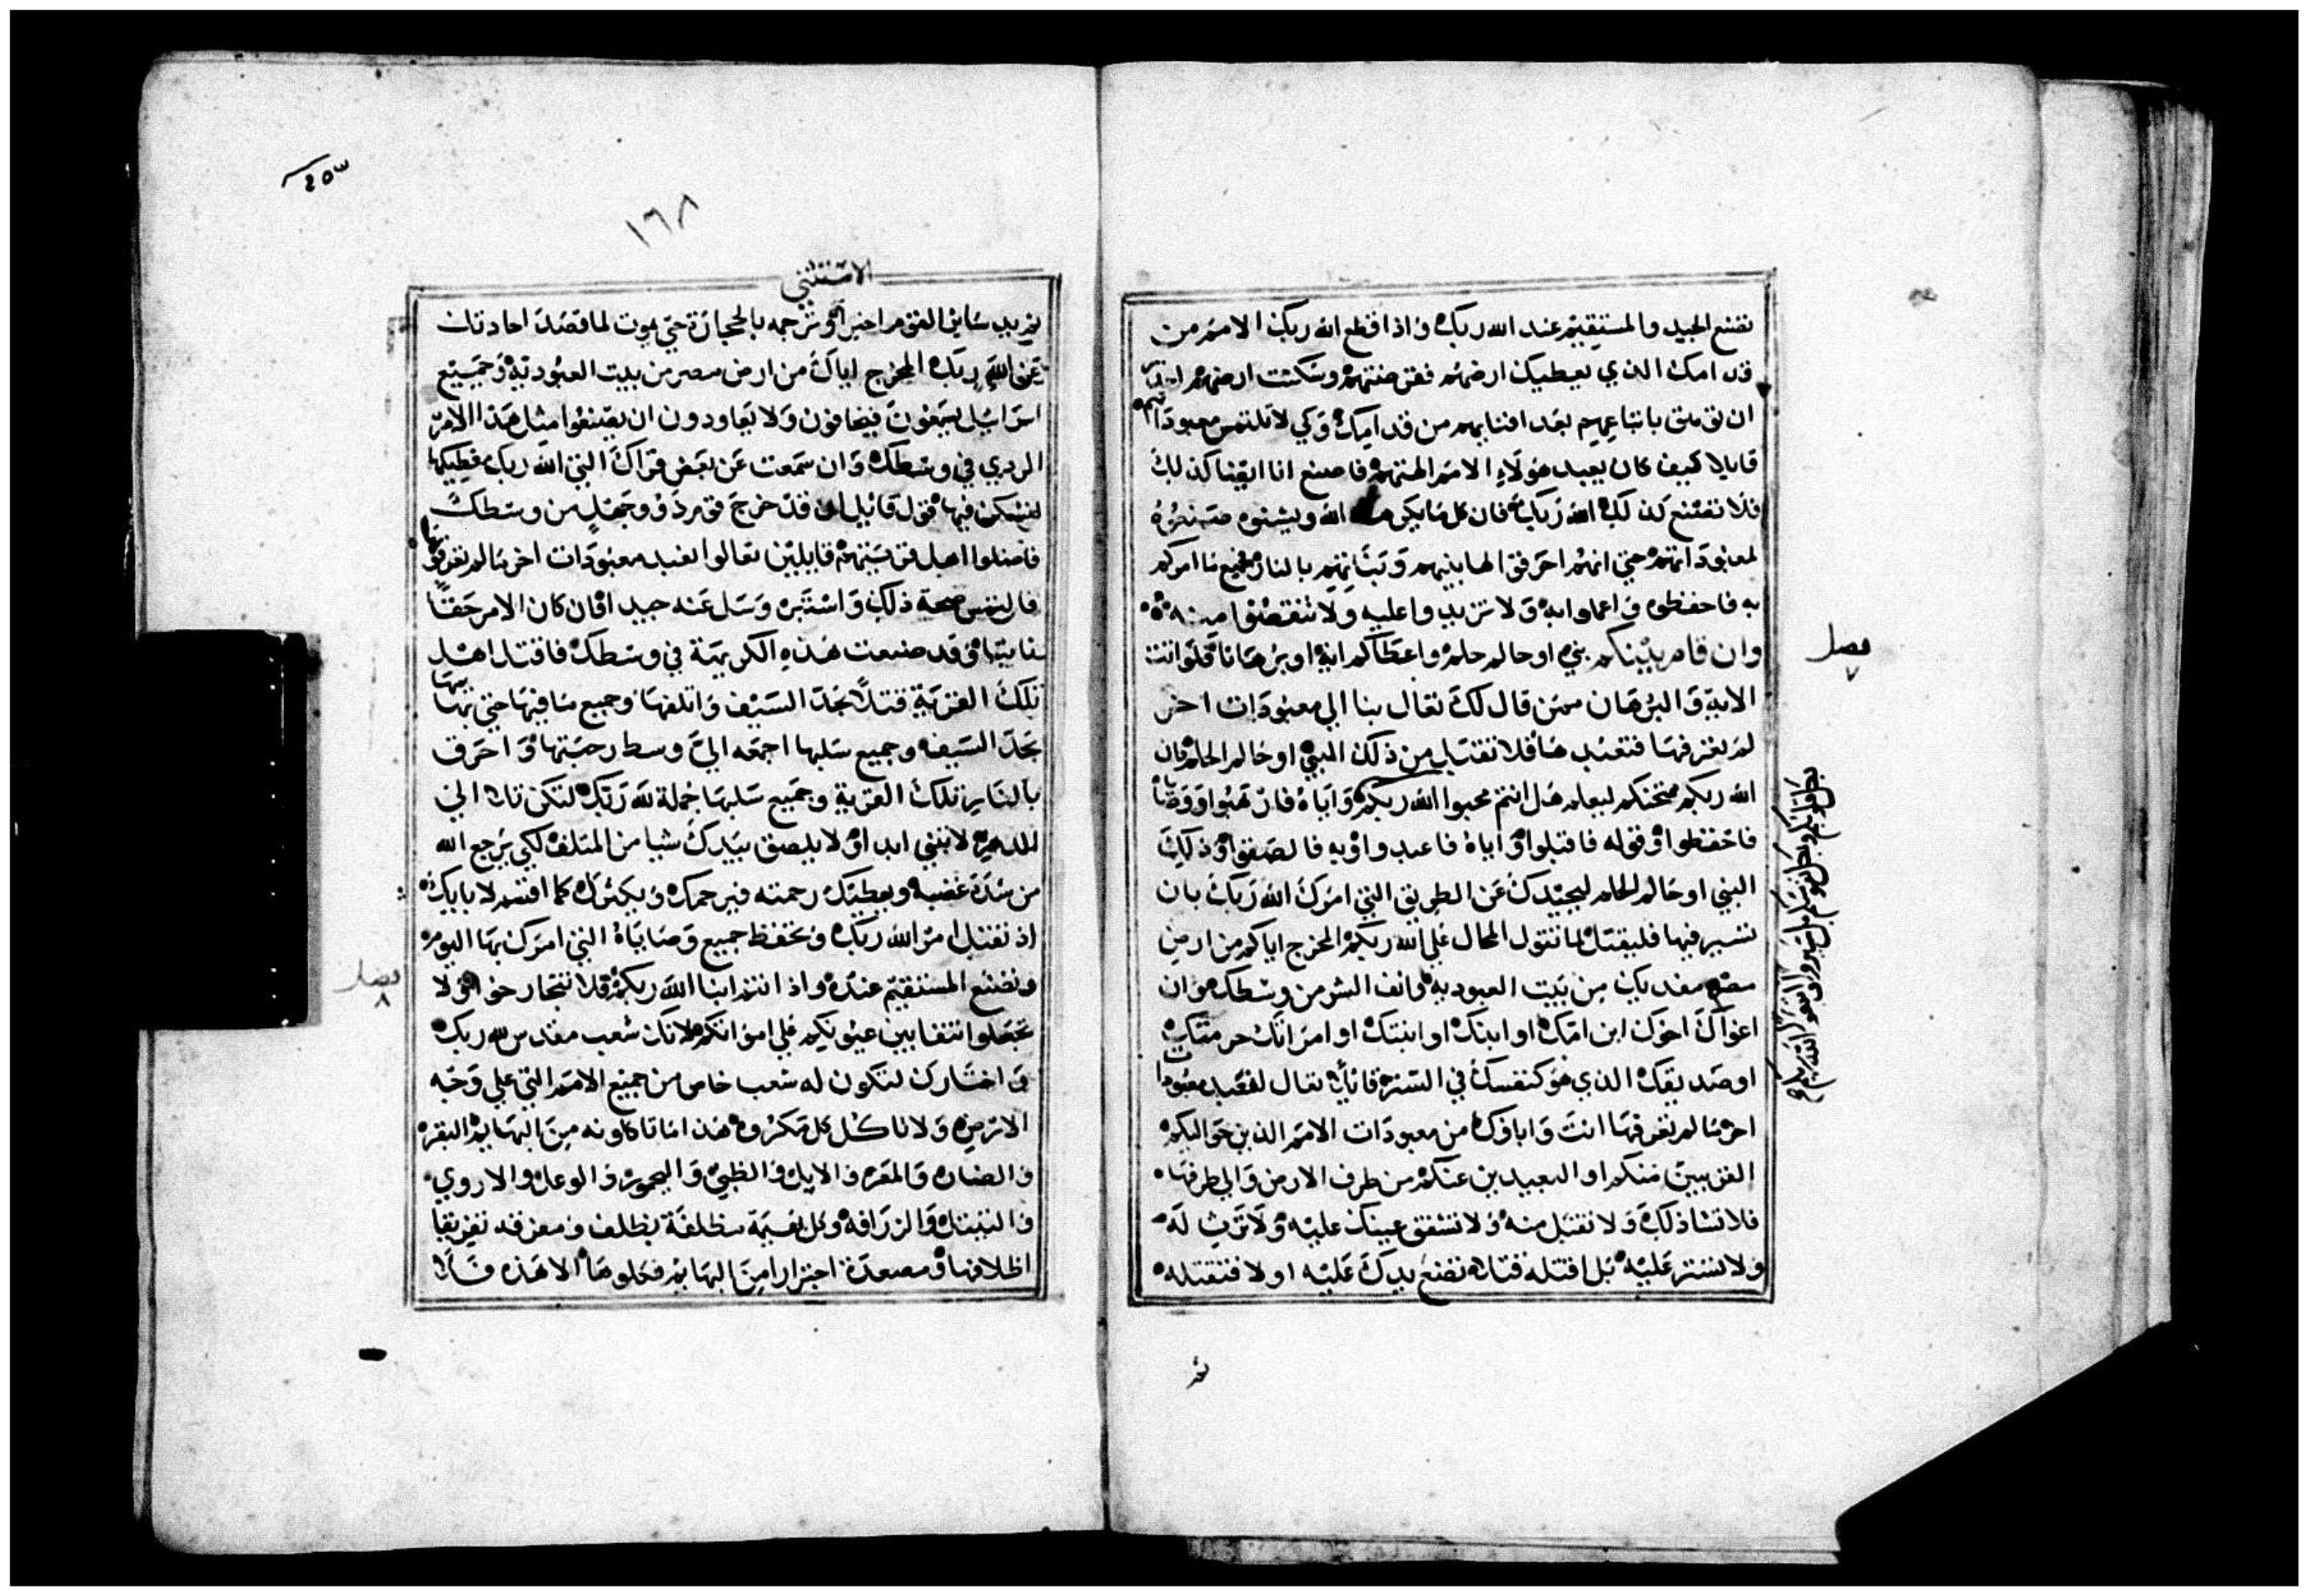 تصنع الجيد والمستقيم عند الله ربك واذا اقطع الله ربك الامم من
قدامك الذي يعطيك ارضهم فقرضتهم وسكنت ارضهم
ان توهق باتباعهم بعد افنايهم من قدامك وكي لا تلتمس معبوداتهم
قايلا كيف كان يعبد هولاء الامم الهتهم فاصنع انا ايضا كذلك
فلا تصنع كذلك الله ربك فان كل ما يكره الله ويشنوه صنعوه
لمعبوداتهم حتي انهم احرقوا لها بنيهم وبناتهم بالنار جميع ما امركم
به فاحفظوه واعملوا به ولا تزيدوا عليه ولا تنقصوا منه
وان قام بينكم نبي او حالم حلم واعطاكم اية او برهانا فلو اتت
الاية والبرهان ممن قال لك تعال بنا الي معبودات اخر
لم تعرفها فتعبدها فلا تقبل من ذلك النبي او حالم الحلم فان
الله ربكم ممتحنكم ليعلم هل انتم محبوا الله ربكم واياه فارهبوا ووصاياه
فاحفظوا وقوله فاقبلوا واياه فاعبدوا وبه فالصقوا وذلك
النبي او حالم الحلم ليحيدك عن الطريق التي امرك الله ربك بان
تسير فيها فليقتل لما تقول المحال علي الله ربكم المخرج اياكم من ارض
مصر مفديك من بيت العبوديه فانف الشر من وسطك وان
اغواك اخوك ابن امك او ابنك او ابنتك او امراتك حرمتك
او صديقك الذي هو كنفسك في الستره قائلا تعال لنعبد معبودات
اخر ما لم تعرفها انت واباوك من معبودات الامم الذين حواليكم
القريبين منكم او البعيدين عنكم من طرف الارض والي طرفها
فلا تشا ذلك ولا تقبل منه ولا تشفق عينك عليه ولا ترث له
ولا تستر عليه بل اقتله قتلا تضع يدك عليه اولا فتقتله
فصل
٧
١٦٨
٢٥٣
الاستثني
ثم يد ساير القوم اخيرا وترجمه بالحجارة حتي يموت لما قصد احادتك
عن الله ربك المخرج اياك من ارض مصر من بيت العبوديه وجميع
اسرايل يسمعون فيخافون ولا يعاودون ان يصنعوا مثل هذا الامر
الردي في وسطك وان سمعت عن بعض قراك التي الله ربك معطيكها
لتسكن فيها قول قائل ان قد خرج قوم ذوو جهل من وسطك
فاضلوا اهل قريتهم قايلين تعالوا لنعبد معبودات اخر ما لم تعرفوها
فالتمس صحة ذلك واستبره وسل عنه جيدا فان كان الامر حقا
ثابتا وقد صنعت هذه الكريهة في وسطك فاقتل اهل
تلك القرية قتلا بحد السيف واتلفها وجميع ما فيها حتي بهايمها
بحد السيف وجميع سلبها اجمعه الي وسط رحبتها واحرق
بالنار تلك القرية وجميع سلبها جملة لله ربك لتكن تلا الي
الدهر لا تبني ابدا ولا يلصق بيدك شيا من المتلف لكي يرجع الله
من شدة غضبه ويعطيك رحمته فيرحمك ويكثرك كما اقسم لابايك
اذ تقبل امر الله ربك وتحفظ جميع وصاياه التي امرك بها اليوم
وتصنع المستقيم عنده واذ انتم ابنا الله ربكم فلا تتجارحوا ولا
تجعلوا نتفا بين عيونكم علي امواتكم لانك شعب مقدس لله ربك
واختارك لتكون له شعب خاص من جميع الامم التي علي وجه
الارض ولا تاكل كل مكروه هذا ما تاكلونه من البهايم البقره
والضان والمعز والايل والظبي واليحمور والوعل والاروي
والثيتل والزرافة وكل بهيمة مظلفة بظلف ومعرفه تفريقا
اظلافها ومصعدة اجترارا من البهايم فكلوها الا هذه فلا
فصل
٨